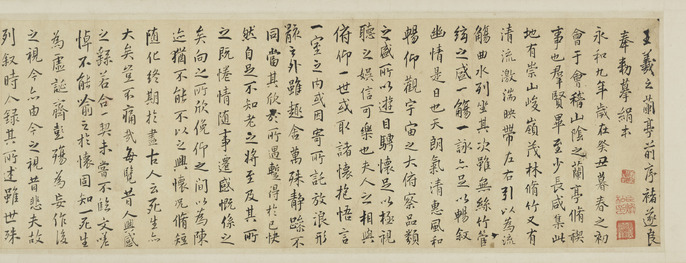 王羲之蘭亭前序褚遂良
奉勅摹絹本
永和九年歲在癸丑暮春之初
會于會稽山陰之蘭亭脩禊
事也羣賢畢至少長咸集此
地有崇山峻嶺茂林脩竹又有
清流激湍映帶左右引以為流
觴曲水列坐其次雖無絲竹管
絃之盛一觴一詠亦足以暢叙
幽情是日也天朗氣清惠風和
暢仰觀宇宙之大俯察品類
之盛所以遊目騁懷足以極視
聽之娛信可樂也夫人之相與
俯仰一世或取諸懷抱悟言
一室之內或因寄所託放浪形
骸之外雖趣舍萬殊靜躁不
同當其欣於所遇蹔得於己快
然自足不知老之將至及其所
之既惓情隨事遷感慨係之
矣向之所欣俛仰之間以為陳
迹猶不能不以之興懷況脩短
隨化終期於盡古人云死生亦
大矣豈不痛哉每覽昔人興感
之由若合一契未嘗不臨文嗟
悼不能喻之於懷固知一死生
為虛誕齊彭殤為妄作後
之視今亦由今之視昔悲夫故
列叙時人錄其所述雖世殊